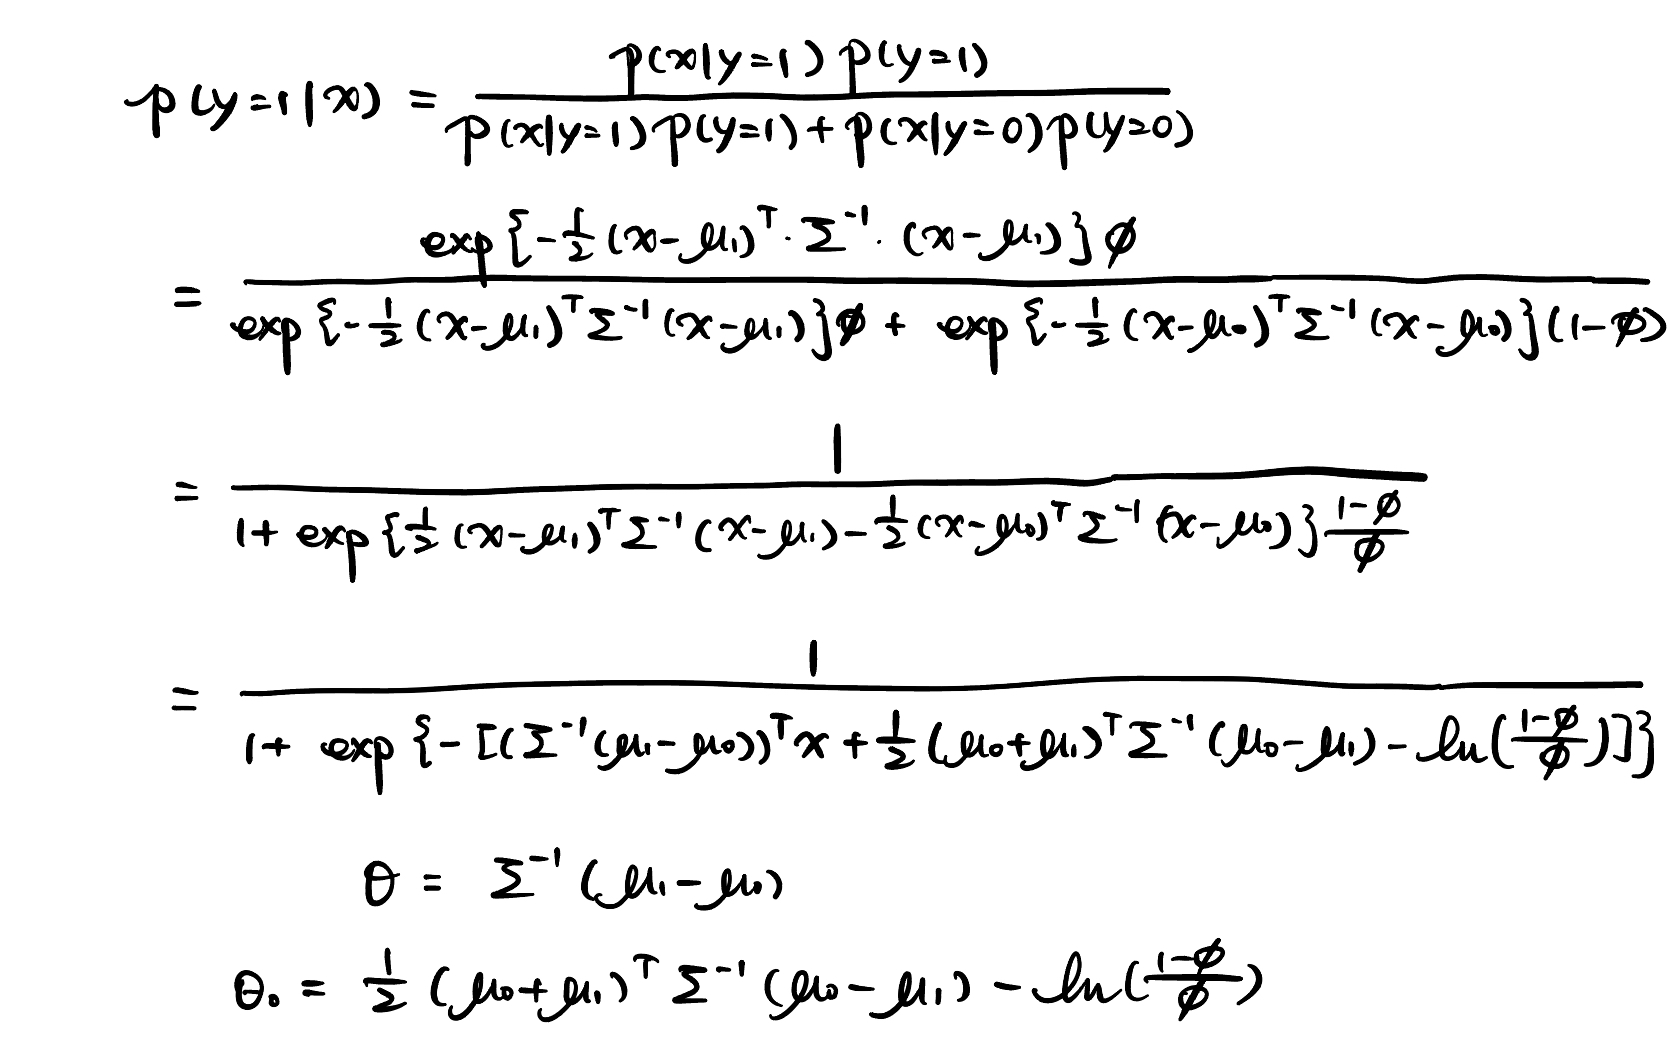 p(y=1|x) = \frac{p(x|y=1) p(y=1)}{p(x|y=1)p(y=1)+p(x|y=0)p(y=0)}
= \frac{exp{-\frac{1}{2}(x-μ₁)^T · Σ^{-1} · (x-μ₁)}ϕ}{exp{-\frac{1}{2}(x-μ₁)^T Σ^{-1}(x-μ₁)}ϕ + exp{-\frac{1}{2}(x-μ₀)^T Σ^{-1}(x-μ₀)}(1-ϕ)}
= \frac{1}{1+ exp{\frac{1}{2}(x-μ₁)^T Σ^{-1}(x-μ₁)-\frac{1}{2}(x-μ₀)^T Σ^{-1}(x-μ₀)}\frac{1-ϕ}{ϕ}}
= \frac{1}{1+ exp{-[(Σ^{-1}(μ₁-μ₀))^T x+\frac{1}{2}(μ₀+μ₁)^T Σ^{-1}(μ₀-μ₁)-ln(\frac{1-ϕ}{ϕ})]}}
θ = Σ^{-1}(μ₁-μ₀)
θ₀ = \frac{1}{2}(μ₀+μ₁)^T Σ^{-1}(μ₀-μ₁)-ln(\frac{1-ϕ}{ϕ})